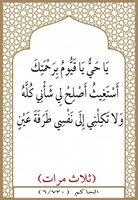 يَا حَيُّ يَا قَيُّومُ بِرَحْمَتِكَ
أَسْتَغِيثُ أَصْلِحْ لِي شَأْنِي كُلَّهُ
وَلَا تَكِلْنِي إِلَى نَفْسِي طَرْفَةَ عَيْنٍ
(ثلاث مرات)
الحاكم (٦/٧٣٠)